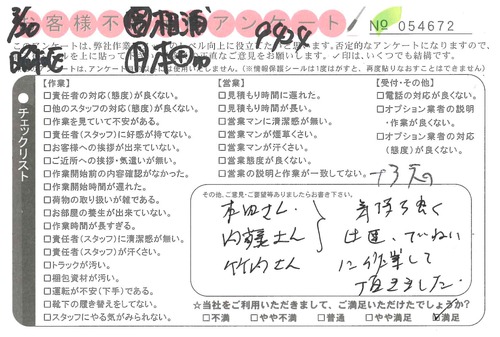 お客様不満アンケート
№ 054672
8/30
相浦
本田
【作業】
□責任者の対応(態度)が良くない。
□他のスタッフの対応(態度)が良くない。
□作業を見ていて不安がある。
□責任者(スタッフ)に好感が持てない。
□お客様への挨拶が出来ていない。
□ご近所への挨拶・気遣いが無い。
□作業開始前の内容確認がなかった。
□作業開始時間が遅れた。
□荷物の取り扱いが雑である。
□お部屋の養生が出来ていない。
□作業時間が長すぎる。
□責任者(スタッフ)に清潔感が無い。
□責任者(スタッフ)が汗くさい。
□トラックが汚い。
□梱包資材が汚い。
□運転が不安(下手)である。
□靴下の履き替えをしてない。
□スタッフにやる気がみられない。
【営業】
□見積もり時間に遅れた。
□見積もり時間が長い。
□営業マンに清潔感が無い。
□営業マンが煙草くさい。
□営業マンが汗くさい。
□営業態度が良くない。
□営業の説明と作業が一致してない。
【受付・その他】
□電話の対応が良くない。
□オプション業者の説明・作業が良くない。
□オプション業者の対応(態度)が良くない。
チェックリスト
その他、ご意見・ご要望等ありましたらお書き下さい。
本田さん
内藤さん
竹内さん
気持ち良く
迅速、ていねい
に作業して
頂きました。
☆当社をご利用いただきまして、ご満足いただけたでしょうか?
□不満 □やや不満 □普通 □やや満足 ☑満足